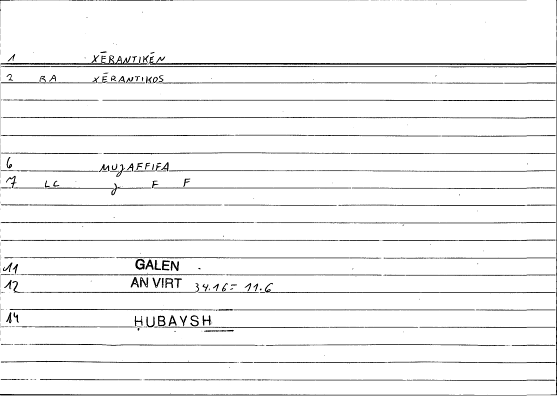 1 XĒRANTIKĒN
2 RA XĒRANTIKOS
6 MUJAFFIFA
7 LC J F F
11 GALEN
12 AN VIRT 34.16 = 11.6
14 ḤUBAYSH